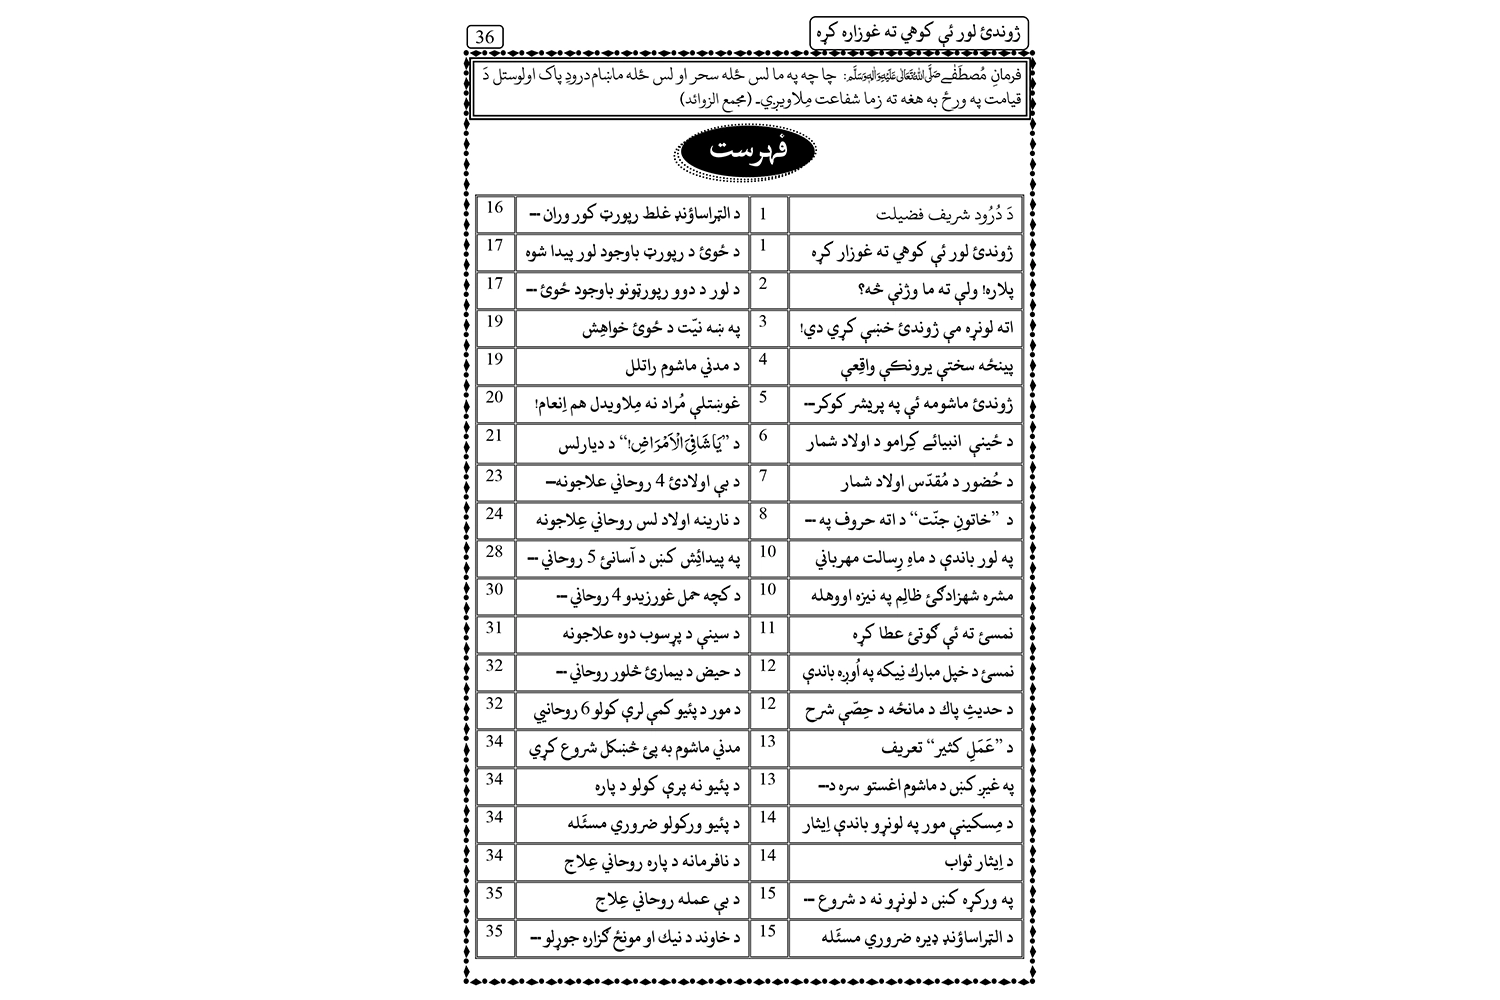 ژوندئ لور ئې کوهي ته غوزاره کړه
36
فرمانِ مُصطَفٰے صَلَّى اللهُ تَعَالٰى عَلَيْهِ وَاٰلِهٖ وَسَلَّم: چا چه په ما لس ځله سحر او لس ځله ماښام درودِ پاک اولوستل دَ
قيامت په ورځ به هغه ته زما شفاعت مِلاويږي۔ (مجمع الزوائد)
فهرست
دَ دُرُود شريف فضيلت 1 د الټراساؤنډ غلط رپورټ کور وران --- 16
ژوندئ لور ئې کوهي ته غوزار کړه 1 د ځوئ د رپورټ باوجود لور پيدا شوه 17
پلاره! ولې ته ما وژنې څه؟ 2 د لور د دوو رپورټونو باوجود ځوئ --- 17
اته لونړه مې ژوندئ خښې کړي دي! 3 په ښه نيّت د ځوئ خواهِش 19
پينځه سختې يرونکې واقِعې 4 د مدني ماشوم راتلل 19
ژوندئ ماشومه ئې په پريشر کوکر--- 5 غوښتلې مُراد نه مِلاويدل هم اِنعام! 20
د ځينې انبيائے کِرامو د اولاد شمار 6 د ”يَا شَافِيَ الْاَمْرَاضِ!“ د ديارلس 21
د حُضور د مُقدّس اولاد شمار 7 د بې اولادئ 4 روحاني علاجونه--- 23
د ”خاتونِ جنّت“ د اته حروف په --- 8 د نارينه اولاد لس روحاني عِلاجونه 24
په لور باندې د ماهِ رِسالت مهرباني 10 په پيدائِش کښ د آسانئ 5 روحاني --- 28
مشره شهزادګئ ظالِم په نيزه اووهله 10 د کچه حمل غورزيدو 4 روحاني --- 30
نمسئ ته ئې ګوتئ عطا کړه 11 د سينې د پړسوب دوه علاجونه 31
نمسئ د خپل مبارك نِيکه په اُوږه باندې 12 د حيض د بيمارئ څلور روحاني --- 32
د حديثِ پاك د مانځه د حِصّې شرح 12 د مور د پئيو کمې لرې کولو 6 روحانيي 32
د ”عَمَلِ کثير“ تعريف 13 مدني ماشوم به پئ څښکل شروع کړي 34
په غيږ کښ د ماشوم اغستو سره د--- 13 د پئيو نه پرې کولو د پاره 34
د مِسکينې مور په لونړو باندې اِيثار 14 د پئيو ورکولو ضروري مسئَله 34
د اِيثار ثواب 14 د نافرمانه د پاره روحاني عِلاج 34
په ورکړه کښ د لونړو نه د شروع --- 15 د بې عمله روحاني عِلاج 35
د الټراساؤنډ ډيره ضروري مسئَله 15 د خاوند د نيك او مونځ ګزاره جوړلو --- 35